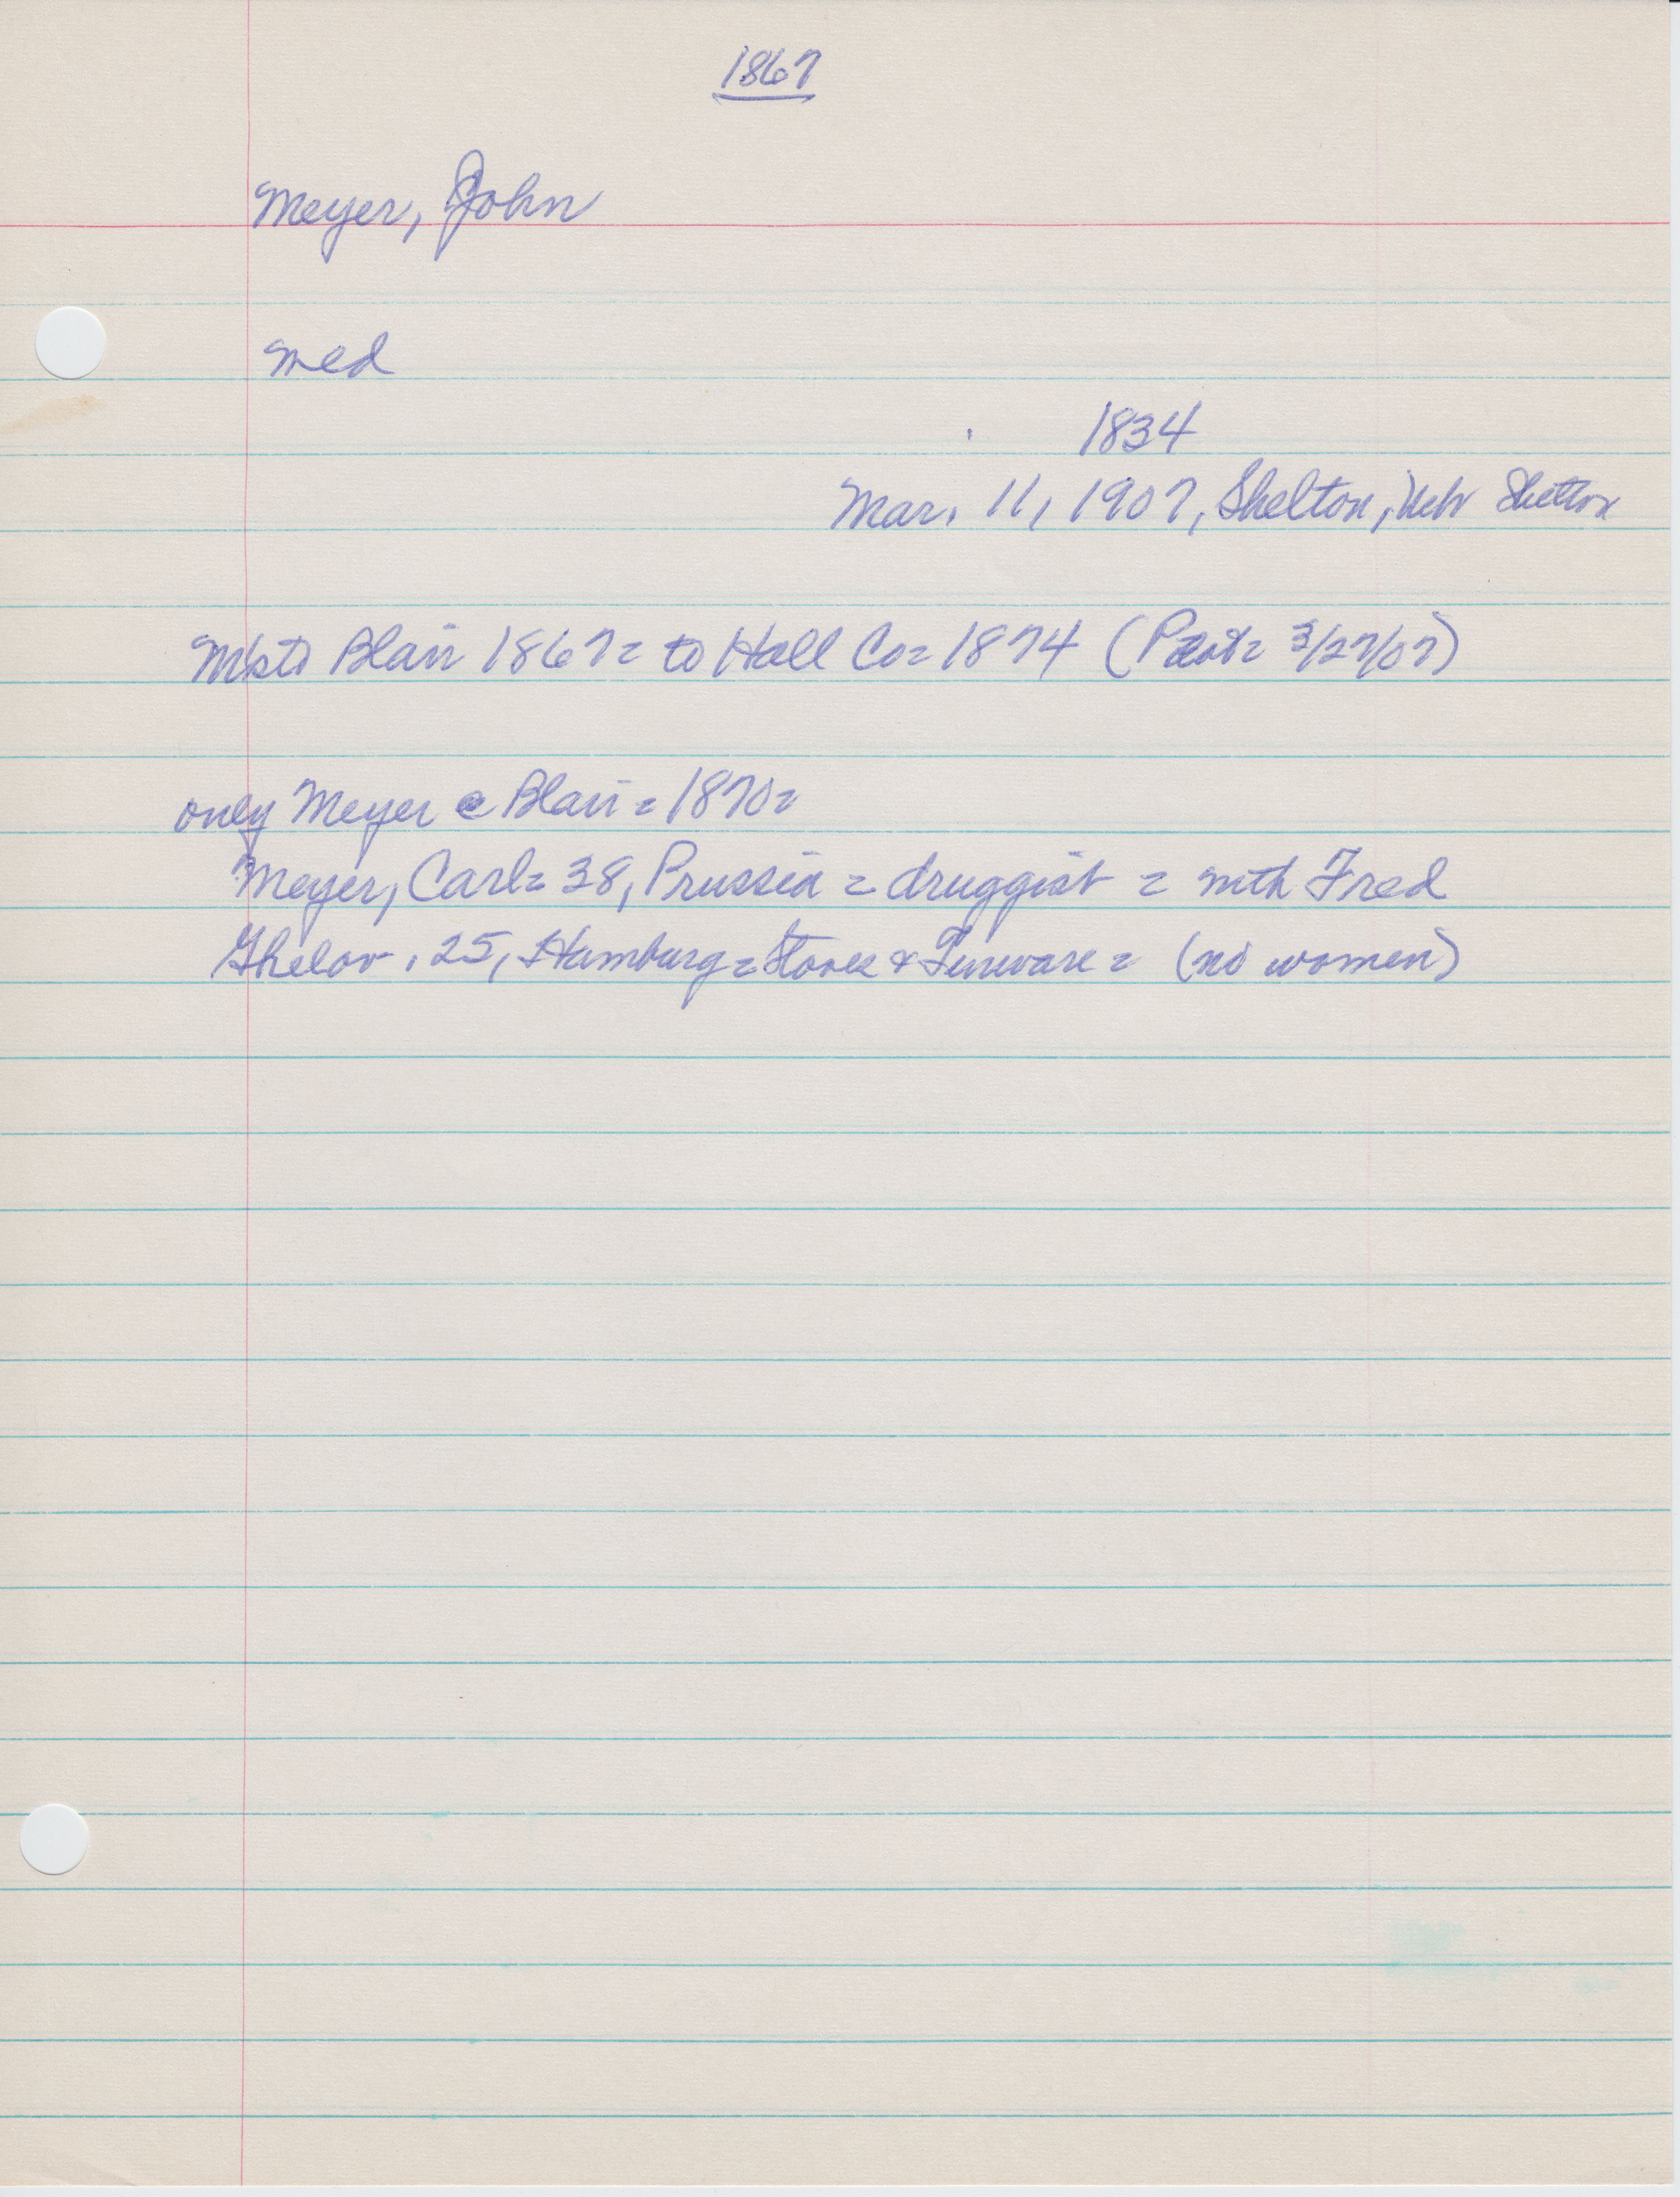 1867
Meyer, John
med
1834
Mar. 11, 1907, Shelton, Nebr Shelton
Blair 1867 = to Hall Co = 1874 ( = 3/27/07)
only Meyer @ Blair = 1870 =
Meyer, Carl = 38, Prussia = druggist = with Fred
25, Hamburg = Stoves & Tinware = (no women)